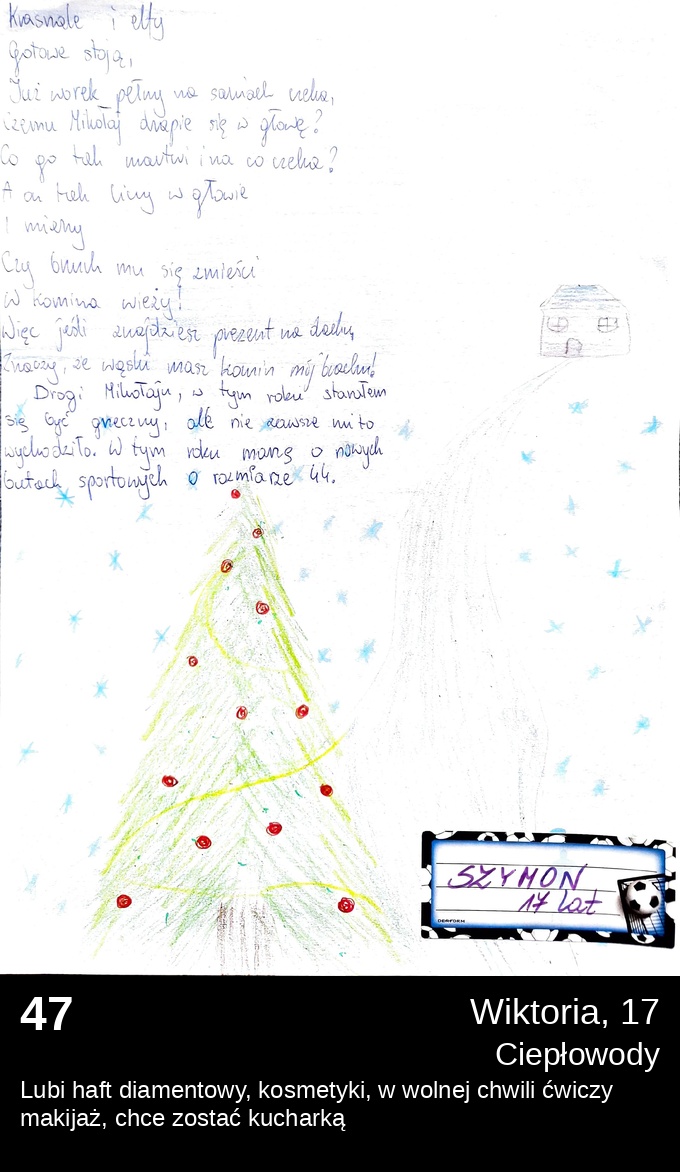 Krasnale i elfy
Gotowe stoją,
Już worek pełny na saniach czeka,
czemu Mikołaj drapie się w głowę?
Co go tak martwi i na co czeka?
A on tak liczy w głowie
I mierzy
Czy brzuch mu się zmieści
W komina wieży!
Więc jeśli znajdziesz prezent na dachu,
Znaczy, że wąski masz komin mój brachu!
Drogi Mikołaju, w tym roku starałem
się być grzeczny, ale nie zawsze mi to
wychodziło. W tym roku marzę o nowych
butach sportowych o rozmiarze 44.
SZYMON
17 lat
DERFORM
47
Wiktoria, 17
Ciepłowody
Lubi haft diamentowy, kosmetyki, w wolnej chwili ćwiczy
makijaż, chce zostać kucharką